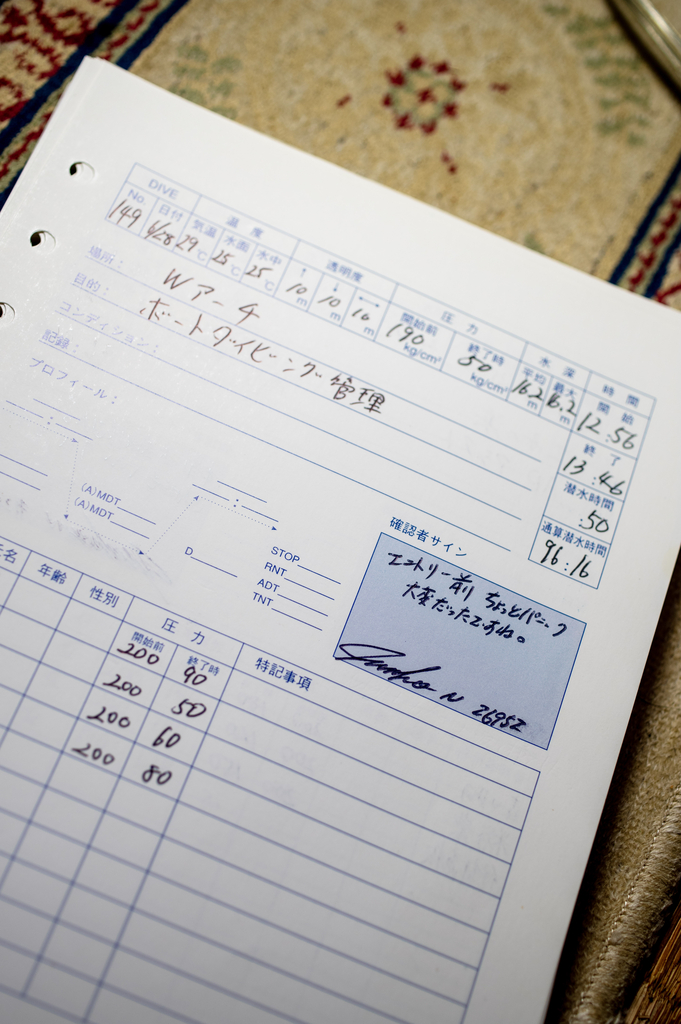 DIVE 温度 透明度 圧力 水深 時間
No. 日付 気温 水面 水中 ↑ ↓ ↔ 開始前 終了時 平均 最大 開始
149 6/28 29℃ 25℃ 25℃ 10m 10m 10m 190kg/cm² 50kg/cm² 16.2m 12:56
場所: Wアーチ
目的: ボートダイビング管理
コンディション:
記録:
プロフィール:
終了
13:46
潜水時間
:50
通算潜水時間
96:16
(A)MDT
(A)MDT
D
STOP
RNT
ADT
TNT
確認者サイン
エントリー前 ちょっとパニック
大変だったですね。
N 26952
名 年齢 性別 圧力 特記事項
開始前 終了時
200 90
200 50
200 60
200 80